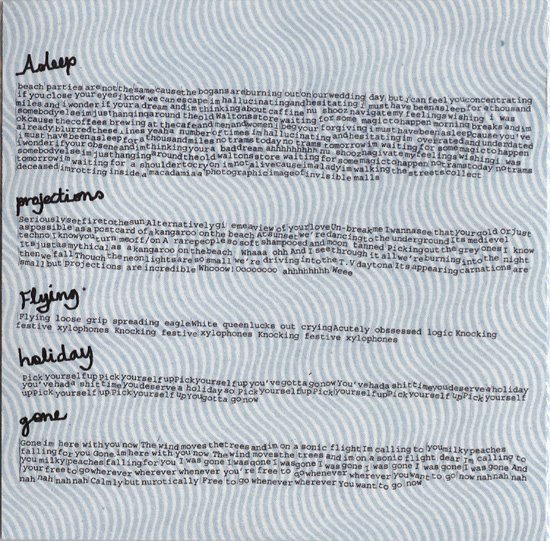 Asleep
beach parties are not the same cause the bogans are burning out on our wedding day, but i can feel you concentrating
if you close your eyes i know we can escape im hallucinating and hesitating i must have been asleep for a thousand
miles and i wonder if your a dream and im thinking about caffine nu shooz navigate my feelings wishing i was
somebody else im just hanging around the old Waltons store waiting for some magic to happen morning breaks and im
ok cause the coffees brewing at the cafe and men and women i beg your forgiving i must have been asleep cause you've
already blurred these lines yeah a number of times im hallucinating and hesitating im overated and underdated
i must have been asleep for a thousand miles no trams today no trams tomorrow im waiting for some magic to happen
i wonder if your obsene and im thinking your a bad dream ahhhhhhhhh nu shooz navigate my feelings wishing i was
somebody else im just hanging around the old waltons store waiting for some magic to happen no trams today no trams
tomorrow im waiting for a shoulder to cry on im not alive cause im a lady im walking the streets collect
deceased im rotting inside a macadamia a photographic image of invisible malls
projections
Seriously set fire to the sun Alternatively gi eme a view of your love Un-break me I wanna see that your gold Or just
as possible as a postcard of a kangaroo on the beach At sunset we're dancing to the underground Its med level
techno i know you turn me off/on A rare people so soft shampooed and moon tanned Picking out the grey ones I know
Its just as mythical as a kangaroo on the beach Whaaa ohh And I see through it all we're burning into the night
then we fall Though the neon lights are so small we're driving into the T.V daytona Its appearing carnations are
small but projections are incredible Whooow! Ooooooo ahhhhhhhh Weee
Flying
Flying loose grip spreading eagleWhite queenlucks out cryingAcutely obssessed logic Knocking
festive xylophones Knocking festive xylophones Knocking festive xylophones
holiday
Pick yourself up Pick yourself upPick yourself up you've gotta go now You've had a shit time you deserve a holiday
you've had a shit time You deserve a holiday so Pick yourself upPick yourself upPick yourself upPick yourself
upPick yourself upPick yourself up You gotta go now
gone
Gone im here with you now The wind moves the trees and im on a sonic flight Im calling to you milky peaches
falling for you Gone im here with you now The wind moves the trees and im on a sonic flight dear Im calling to
you milky peaches falling for you I was gone I was gone I was gone I was gone I was gone I was gone I was gone And
your free to go wherever wherever whenever you're free to go whenever wherever you want to go now nah nah nah
nah nah nah nah Calmly but nurotically Free to go whenever wherever You want to go now